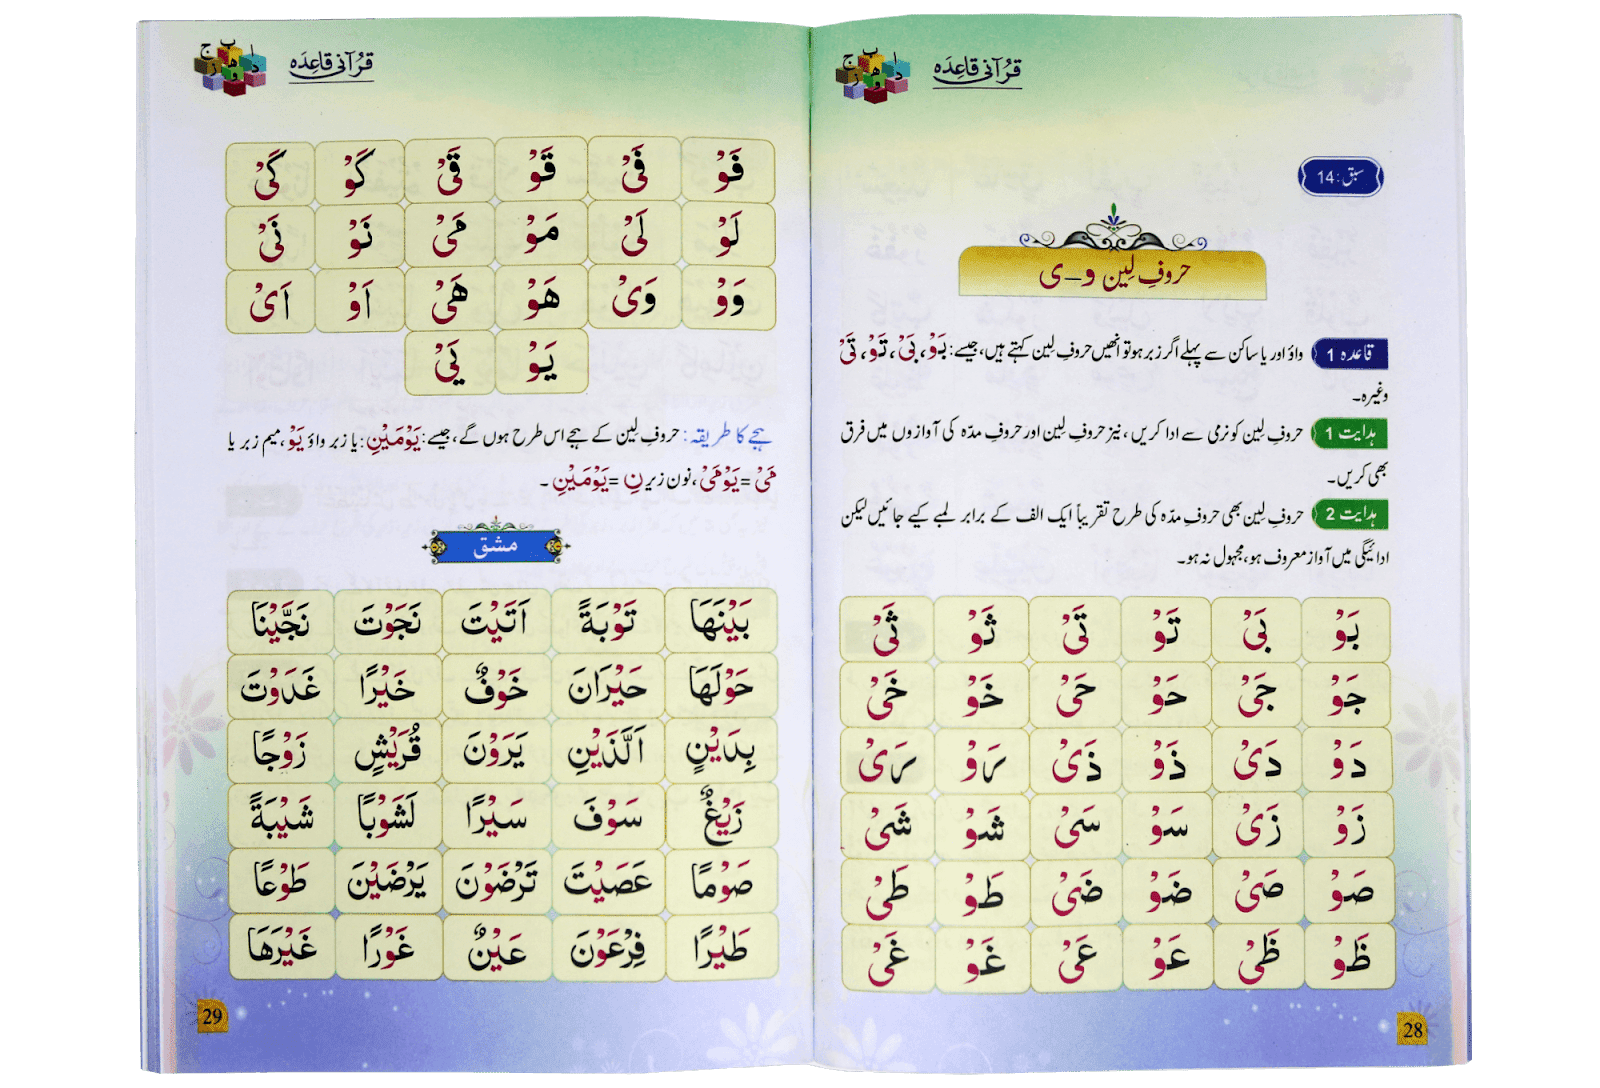 قرآنی قاعِدہ
سبق: 14
حروفِ لِین و۔ی
قاعدہ 1 واؤ اور یا ساکن سے پہلے اگر زبر ہو تو انھیں حروفِ لِین کہتے ہیں، جیسے: بَوْ، بَیْ، تَوْ، تَیْ
وغیرہ۔
ہدایت 1 حروفِ لِین کو نرمی سے ادا کریں، نیز حروفِ لِین اور حروفِ مدّہ کی آوازوں میں فرق
بھی کریں۔
ہدایت 2 حروفِ لِین بھی حروفِ مدّہ کی طرح تقریباً ایک الف کے برابر لمبے کیے جائیں لیکن
ادائیگی میں آواز معروف ہو، مجہول نہ ہو۔
بَوْ بَیْ تَوْ تَیْ ثَوْ ثَیْ
جَوْ جَیْ حَوْ حَیْ خَوْ خَیْ
دَوْ دَیْ ذَوْ ذَیْ رَوْ رَیْ
زَوْ زَیْ سَوْ سَیْ شَوْ شَیْ
صَوْ صَیْ ضَوْ ضَیْ طَوْ طَیْ
ظَوْ ظَیْ عَوْ عَیْ غَوْ غَیْ
28
قرآنی قاعِدہ
فَوْ فَیْ قَوْ قَیْ كَوْ كَیْ
لَوْ لَیْ مَوْ مَیْ نَوْ نَیْ
وَوْ وَیْ هَوْ هَیْ اَوْ اَیْ
یَوْ یَیْ
ہجے کا طریقہ: حروفِ لِین کے ہجے اس طرح ہوں گے، جیسے: یَوْمَیْنِ: یا زبر واؤ یَوْ، میم زبر یا
مَیْ = یَوْمَیْ، نون زیر نِ = یَوْمَیْنِ۔
مشق
بَیْنَهَا تَوْبَةً اَتَیْتَ نَجَوْتَ نَجَّیْنَا
حَوْلَهَا حَیْرَانَ خَوْفٌ خَیْرًا غَدَوْتَ
بِدَیْنٍ اَلَّذَیْنِ یَرَوْنَ قُرَیْشٍ زَوْجًا
زَیْغٌ سَوْفَ سَیْرًا لَشَوْبًا شَیْبَةً
صَوْمًا عَصَیْتَ تَرْضَوْنَ یَرْضَیْنَ طَوْعًا
طَیْرًا فِرْعَوْنَ عَیْنٌ غَوْرًا غَیْرَهَا
29